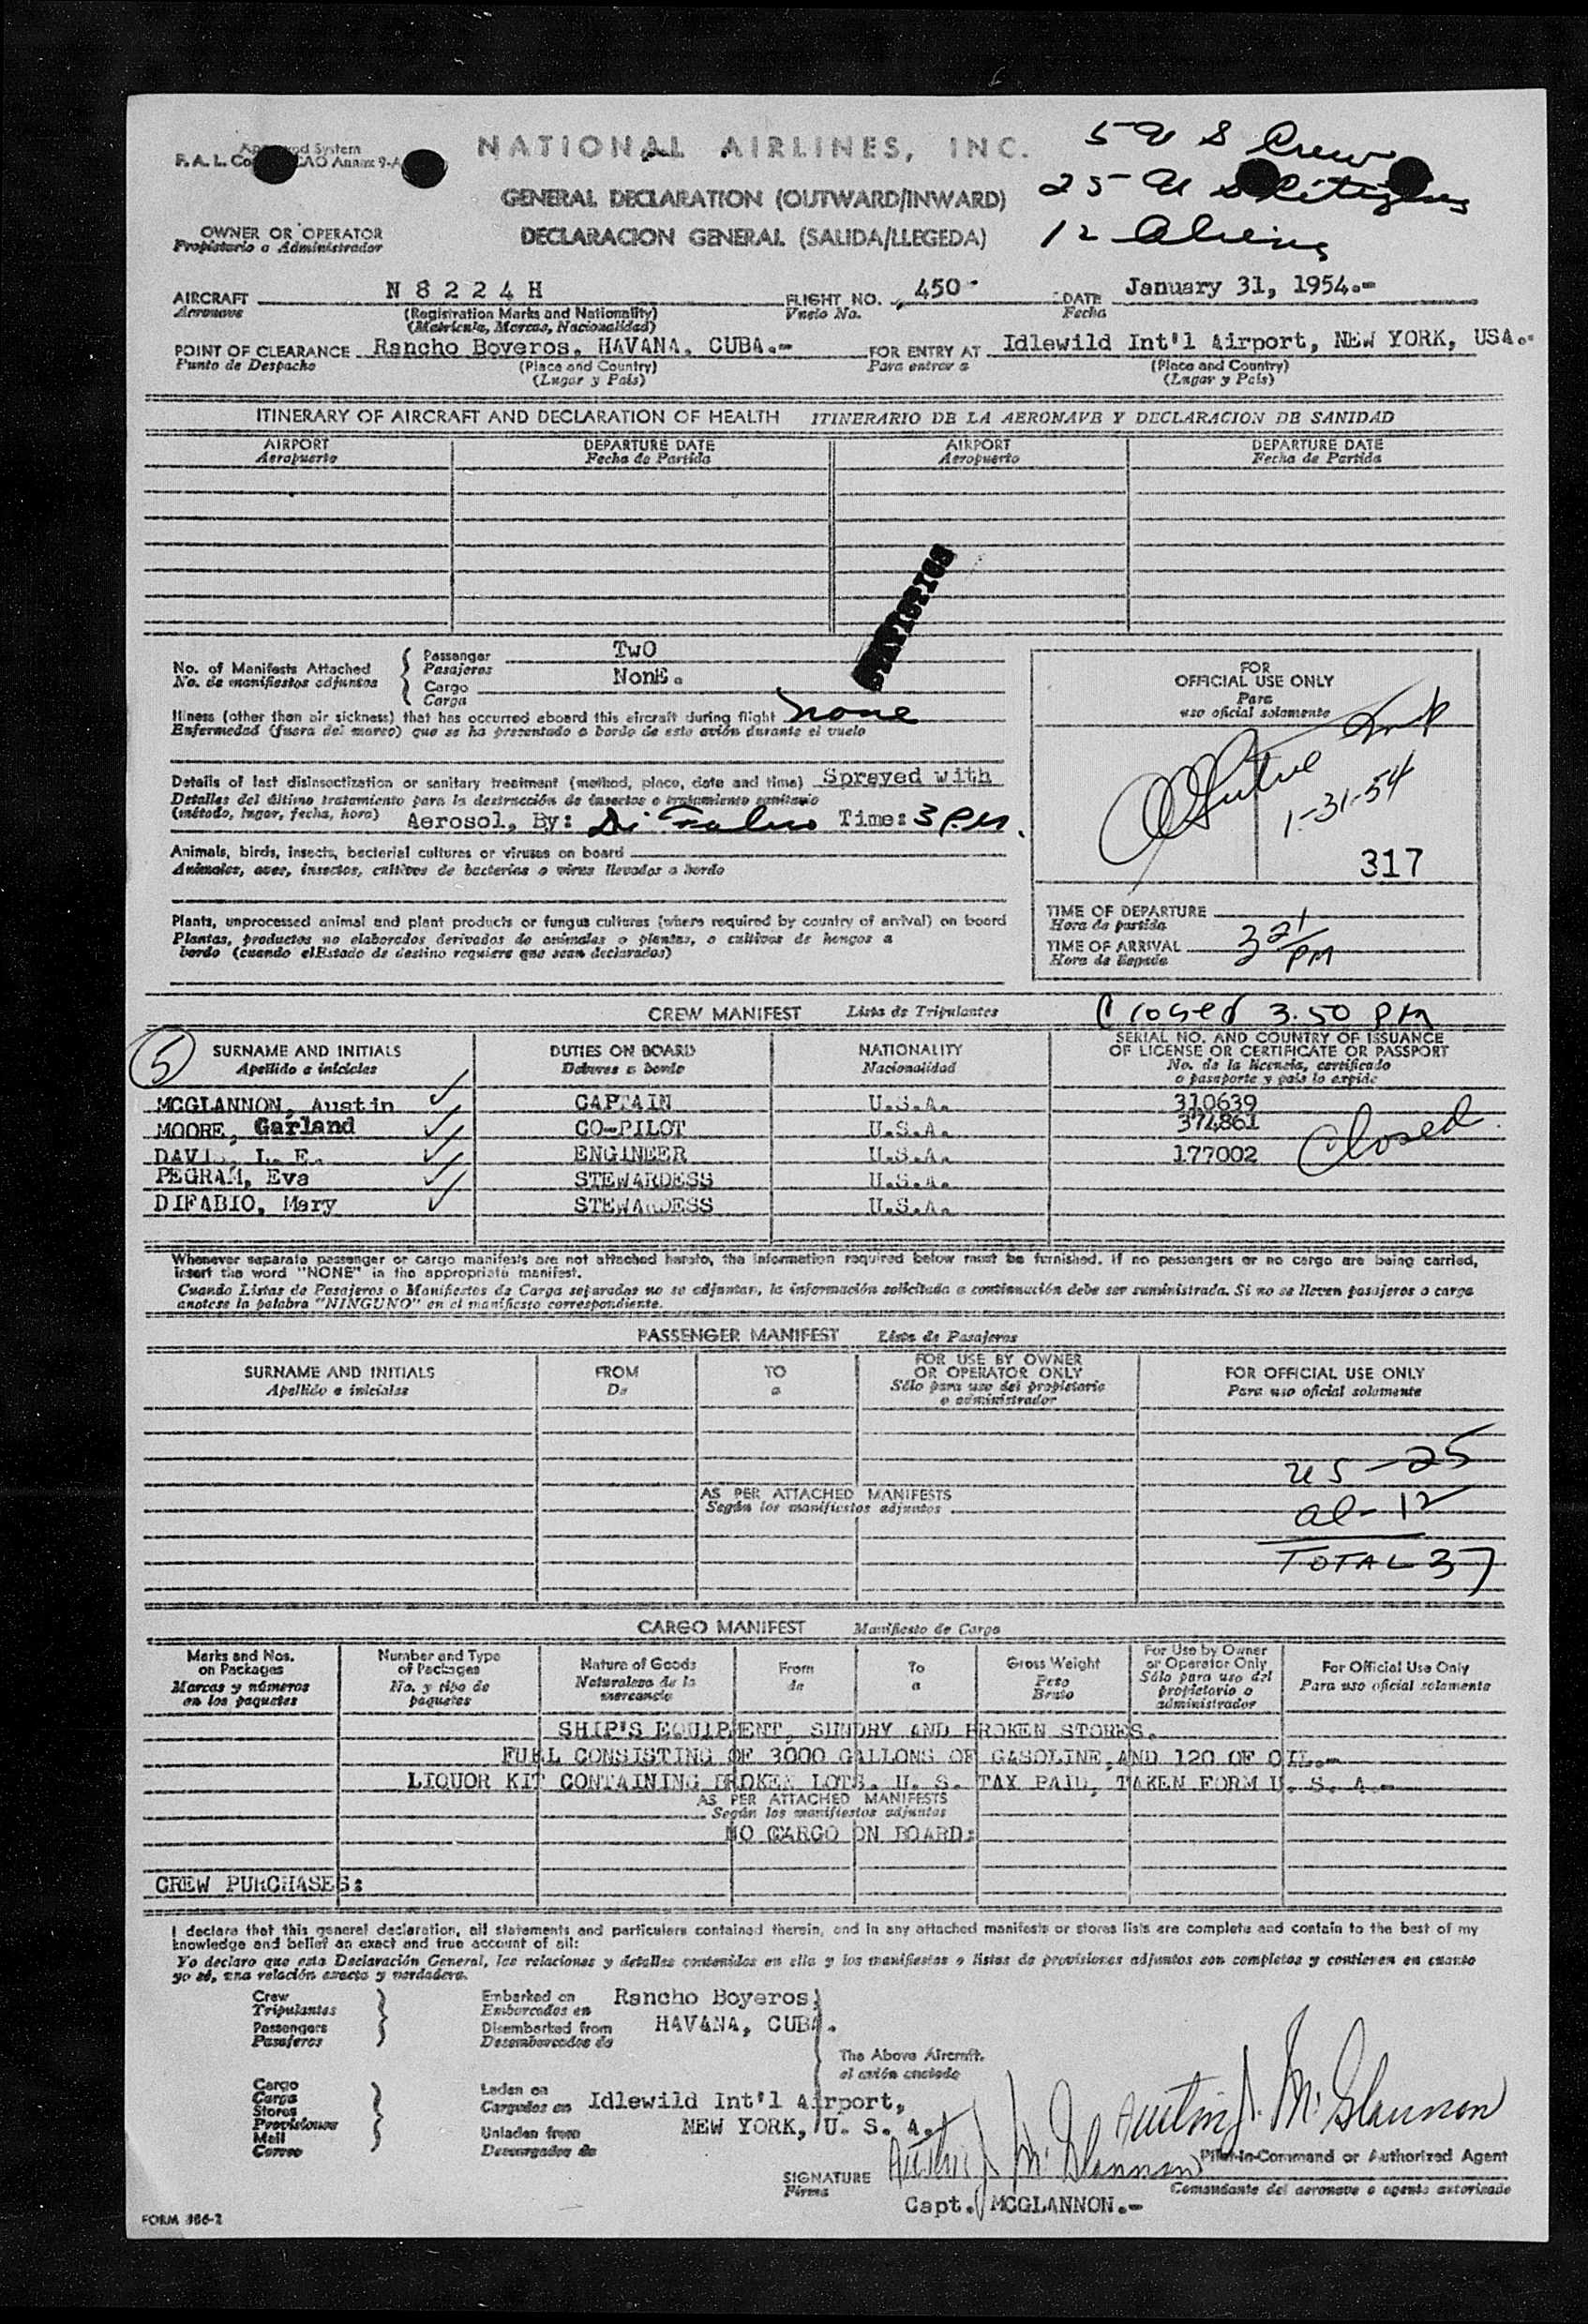 NATIONAL AIRLINES, INC.
5 U S Crew
F. A. L. ICAO Annex 9-A
25 U S Citizens
GENERAL DECLARATION (OUTWARD/INWARD)
12 Aliens
OWNER OR OPERATOR
Propietario o Administrador
DECLARACION GENERAL (SALIDA/LLEGEDA)
AIRCRAFT N 8 2 2 4 H FLIGHT NO. 450 DATE January 31, 1954.-
Aeronave (Registration Marks and Nationality) Vuelo No. Fecha
(Matricula, Marcas, Nacionalidad)
POINT OF CLEARANCE Rancho Boyeros, HAVANA, CUBA.- FOR ENTRY AT Idlewild Int'l Airport, NEW YORK, USA.-
Punto de Despacho (Place and Country) Para entrar a (Place and Country)
(Lugar y Pais) (Lugar y Pais)
ITINERARY OF AIRCRAFT AND DECLARATION OF HEALTH ITINERARIO DE LA AERONAVE Y DECLARACION DE SANIDAD
AIRPORT DEPARTURE DATE AIRPORT DEPARTURE DATE
Aeropuerto Fecha de Partida Aeropuerto Fecha de Partida
STATISTICS
No. of Manifests Attached
No. de manifiestos adjuntos
Passenger TwO
Pasajeros
Cargo NonE.
Carga
Illness (other than air sickness) that has occurred aboard this aircraft during flight none
Enfermedad (fuera del mareo) que se ha presentado a bordo de este avión durante el vuelo
Details of last disinsectization or sanitary treatment (method, place, date and time) Sprayed with
Detalles del último tratamiento para la destrucción de insectos o tratamiento sanitario
(método, lugar, fecha, hora) Aerosol, By: Time: 3 P.M.
Animals, birds, insects, bacterial cultures or viruses on board
Animales, aves, insectos, cultivos de bacterias o virus llevados a bordo
Plants, unprocessed animal and plant products or fungus cultures (where required by country of arrival) on board
Plantas, productos no elaborados derivados de animales o plantas, o cultivos de hongos a
bordo (cuando elEstado de destino requiere que sean declarados)
FOR
OFFICIAL USE ONLY
Para
uso oficial solamente
1-31-54
317
TIME OF DEPARTURE
Hora de partida
TIME OF ARRIVAL 3 21 PM
Hora de llegada
CREW MANIFEST Lista de Tripulantes Closed 3.50 PM
5
SURNAME AND INITIALS DUTIES ON BOARD NATIONALITY SERIAL NO. AND COUNTRY OF ISSUANCE
OF LICENSE OR CERTIFICATE OR PASSPORT
Apellido e iniciales Deberes a bordo Nacionalidad No. de la licencia, certificado
o pasaporte y país lo expide
MCGLANNON, Austin CAPTAIN U.S.A. 310639
MOORE, Garland CO-PILOT U.S.A. 374861
DAVIS, L. E. ENGINEER U.S.A. 177002 Closed
PEGRAM, Eva STEWARDESS U.S.A.
DIFABIO, Mary STEWARDESS U.S.A.
Whenever separate passenger or cargo manifests are not attached hereto, the information required below must be furnished. If no passengers or no cargo are being carried,
insert the word "NONE" in the appropriate manifest.
Cuando Listas de Pasajeros o Manifiestos de Carga separadas no se adjuntan, la información solicitada a continuación debe ser suministrada. Si no se llevan pasajeros o carga
anotese la palabra "NINGUNO" en el manifiesto correspondiente.
PASSENGER MANIFEST Lista de Pasajeros
SURNAME AND INITIALS FROM TO FOR USE BY OWNER
OR OPERATOR ONLY FOR OFFICIAL USE ONLY
Apellido e iniciales De a Sólo para uso del propietario
o administrador Para uso oficial solamente
US - 25
AS PER ATTACHED MANIFESTS
Según los manifiestos adjuntos
al - 12
TOTAL 37
CARGO MANIFEST Manifiesto de Carga
Marks and Nos.
on Packages
Marcas y números
en los paquetes
Number and Type
of Packages
No. y tipo de
paquetes
Nature of Goods
Naturaleza de la
mercancia
From
de
To
a
Gross Weight
Peso
Bruto
For Use by Owner
or Operator Only
Sólo para uso del
propietario o
administrador
For Official Use Only
Para uso oficial solamente
SHIP'S EQUIPMENT, SUNDRY AND BROKEN STORES.
FUEL CONSISTING OF 3000 GALLONS OF GASOLINE,AND 120 OF OIL.-
LIQUOR KIT CONTAINING BROKEN LOTS. U. S. TAX PAID, TAKEN FORM U. S. A.-
AS PER ATTACHED MANIFESTS
Según los manifiestos adjuntos
NO CARGO ON BOARD:
CREW PURCHASES:
I declare that this general declaration, all statements and particulars contained therein, and in any attached manifests or stores lists are complete and contain to the best of my
knowledge and belief an exact and true account of all:
Yo declaro que esta Declaración General, las relaciones y detalles contenidos en ella y los manifiestos o listas de provisiones adjuntos son completos y contienen en cuanto
yo sé, una relación exacta y verdadera.
Crew
Tripulantes
Passengers
Pasajeros
Embarked on Rancho Boyeros,
Embarcados en
Disembarked from HAVANA, CUBA.
Desembarcados de
The Above Aircraft.
el avión anotado
Cargo
Carga
Stores
Provisiones
Mail
Correo
Laden on
Cargados en Idlewild Int'l Airport,
Unladen from NEW YORK, U. S. A.
Descargados de
Austin J. McGlannon
Pilot-in-Command or Authorized Agent
Comandante del aeronave o agente autorizado
SIGNATURE Austin J McGlannon
Firma
Capt. MCGLANNON.-
FORM 386-2